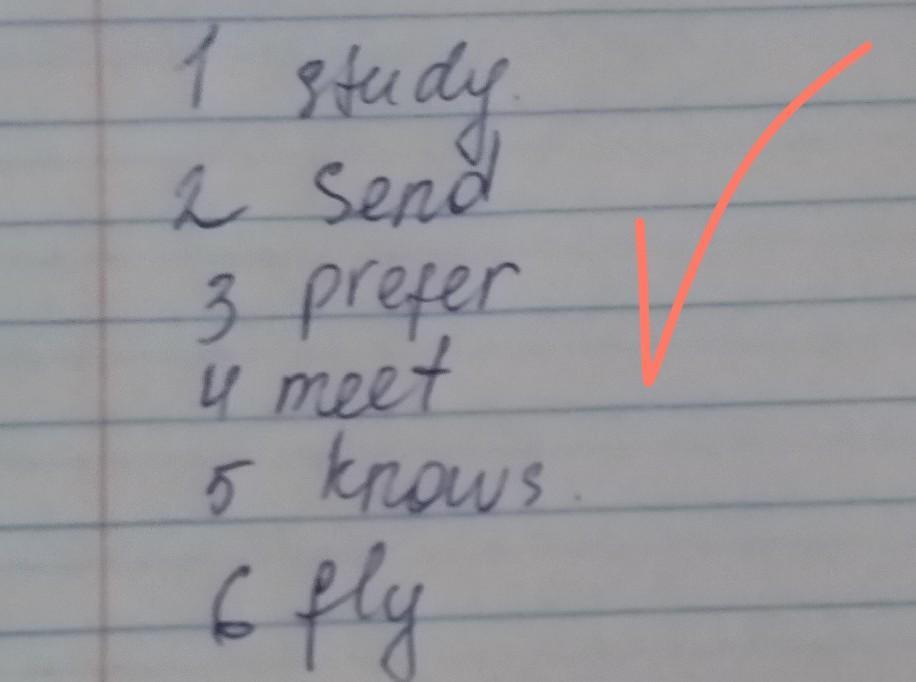 1 study.
2 Send
3 prefer
4 meet
5 knows.
6 fly